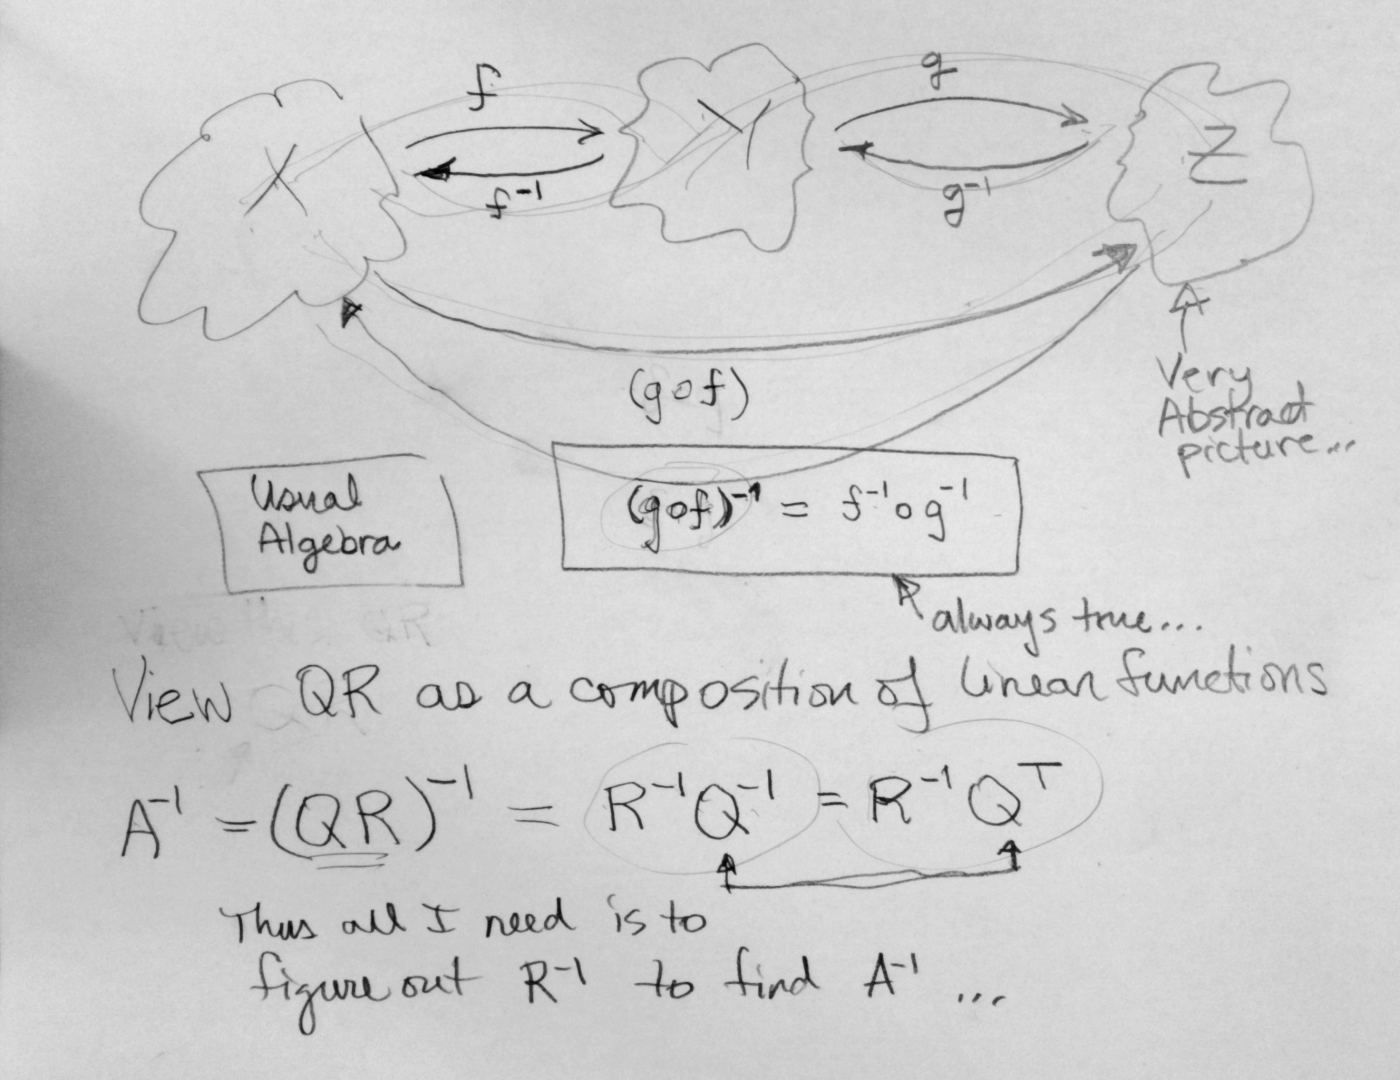 f
g
X
Y
Z
f⁻¹
g⁻¹
(g∘f)
Very
Abstract
picture...
Usual
Algebra
(g∘f)⁻¹ = f⁻¹∘g⁻¹
always true...
View QR as a composition of linear functions
A⁻¹ = (QR)⁻¹ = R⁻¹Q⁻¹ = R⁻¹Qᵀ
Thus all I need is to
figure out R⁻¹ to find A⁻¹ ...